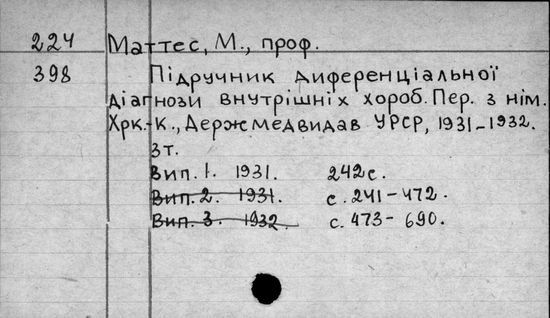 224 Маттес, М., проф.
398 Підручник диференціальної
діагнози внутрішніх хороб. Пер. з нім.
Хрк.-К., Держмедвидав УРСР, 1931-1932.
3т.
Вип. 1. 1931. 242с.
Вип. 2. 1931. с. 241-472.
Вип. 3. 1932. с. 473-690.